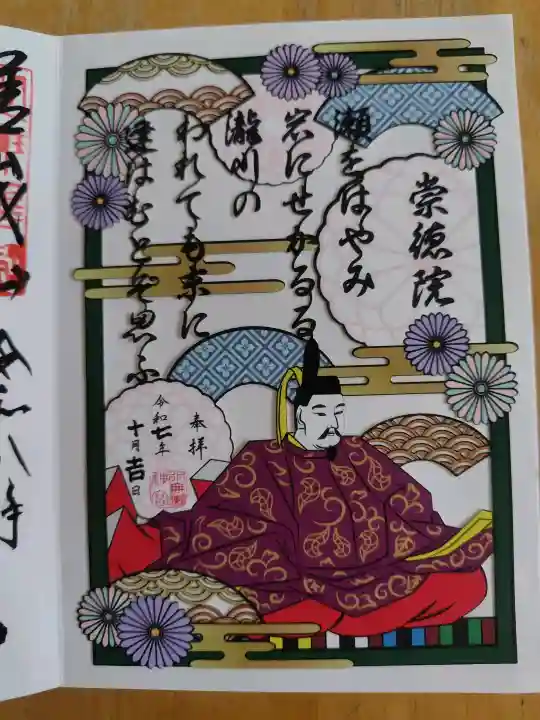 崇徳院
瀬をはやみ
岩にせかるる
瀧川の
われても末に
逢はむとぞ思ふ
奉拝
令和七年
十月吉日